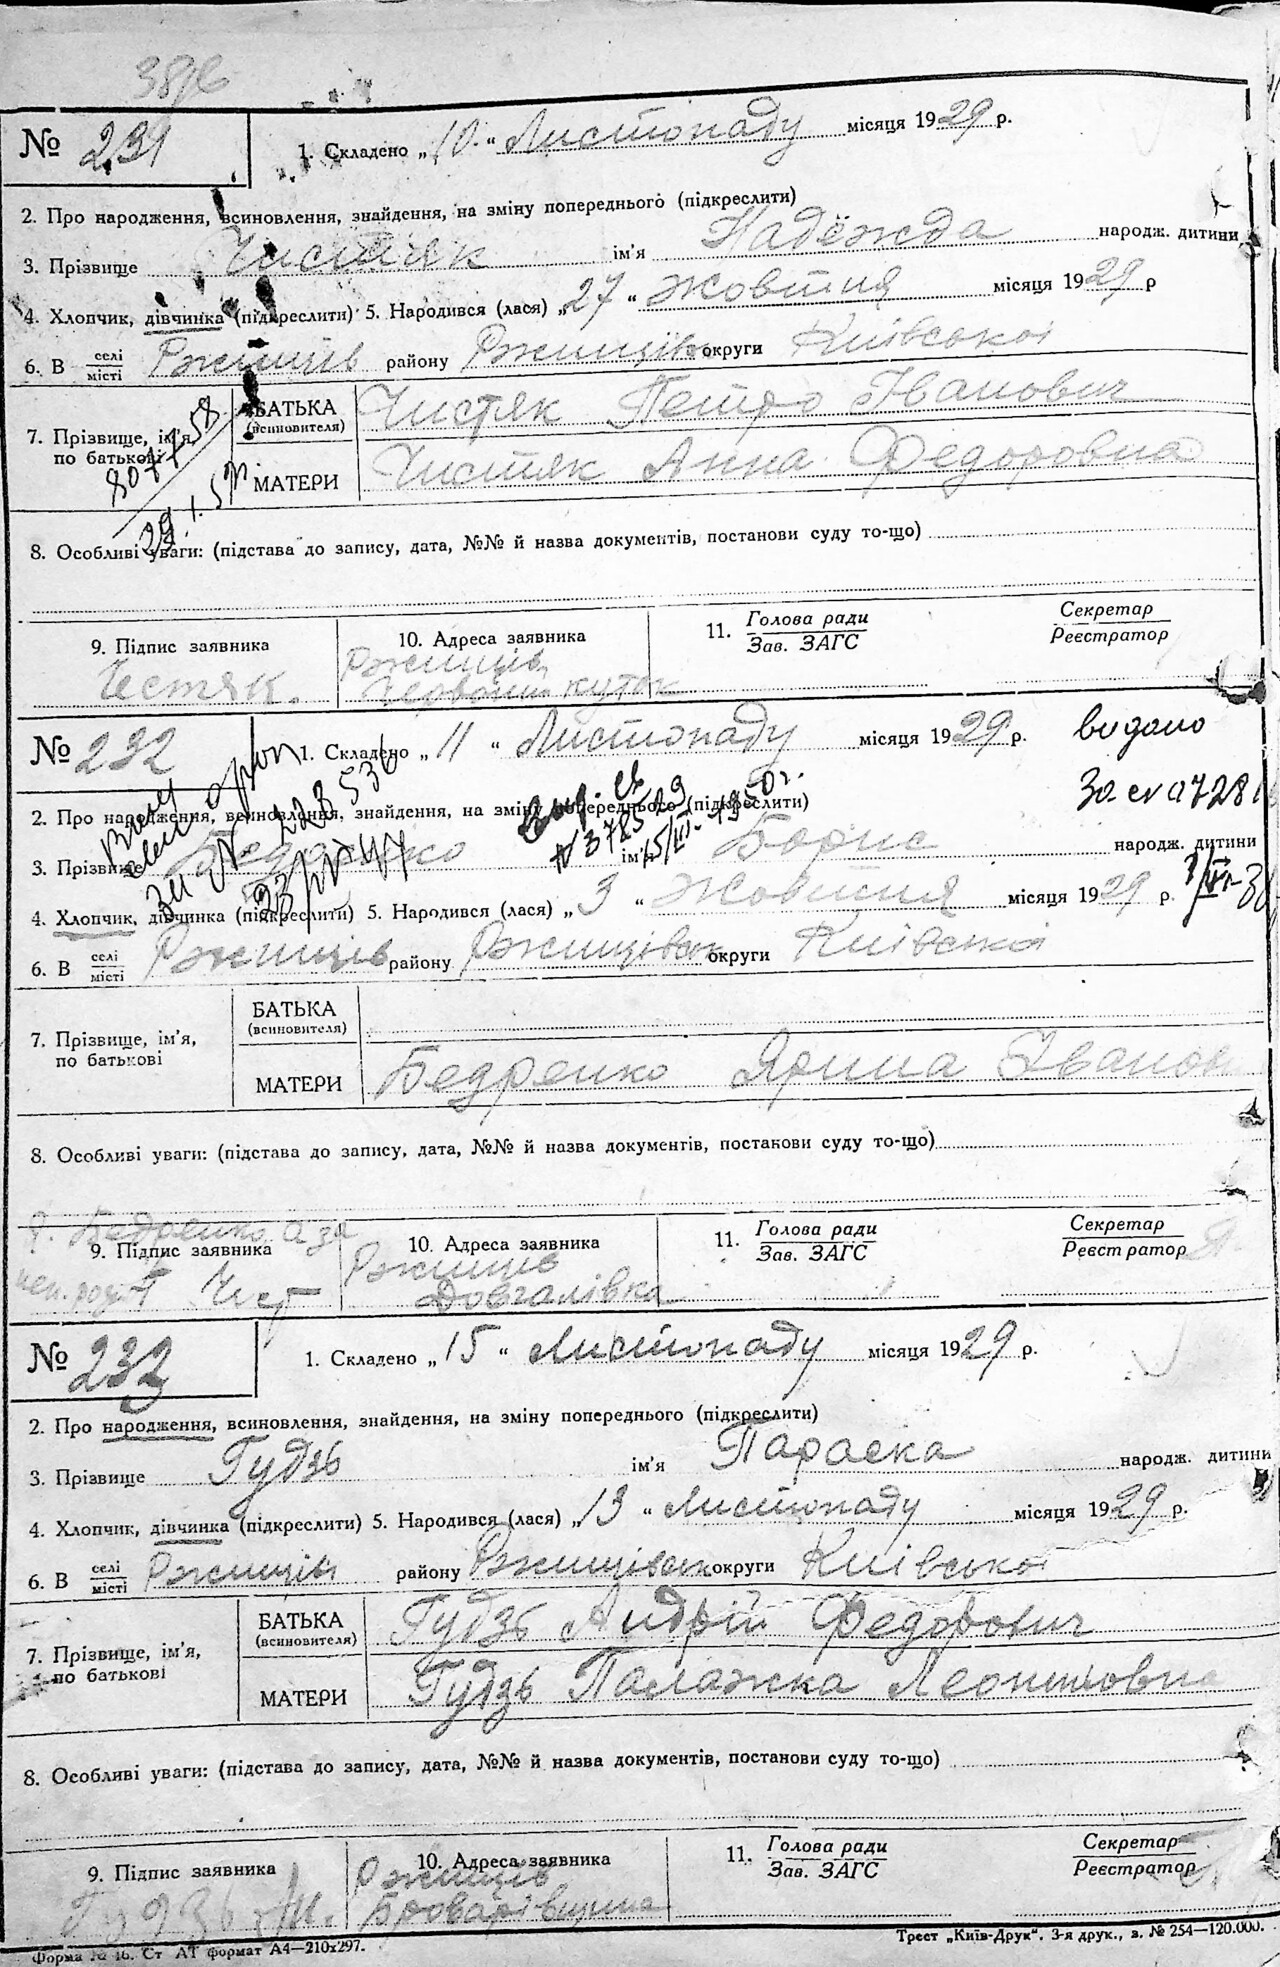 № 231
1. Складено „10“ Листопаду місяця 1929 р.
2. Про народження, всиновлення, знайдення, на зміну попереднього (підкреслити)
3. Прізвище Чистяк ім'я Надёжда народж. дитини
4. Хлопчик, дівчинка (підкреслити) 5. Народився (лася) „27“ Жовтня місяця 1929 р
6. В селі/місті Ржищів району Ржищівськ округи Київської
7. Прізвище, ім'я, по батькові
БАТЬКА (всиновителя) Чистяк Петро Іванович
МАТЕРИ Чистяк Анна Федоровна
8. Особливі уваги: (підстава до запису, дата, №№ й назва документів, постанови суду то-що)
9. Підпис заявника
10. Адреса заявника
11. Голова ради / Зав. ЗАГС
Секретар / Реєстратор
Чистяк.
Ржищів
Червоний куток
№ 232
1. Складено „11“ Листопаду місяця 1929 р.
видано
2. Про народження, всиновлення, знайдення, на зміну попереднього (підкреслити)
3. Прізвище Бедренко ім'я Борис народж. дитини
4. Хлопчик, дівчинка (підкреслити) 5. Народився (лася) „3“ Жовтня місяця 1929 р.
6. В селі/місті Ржищів району Ржищівськ округи Київської
7. Прізвище, ім'я, по батькові
БАТЬКА (всиновителя)
МАТЕРИ Бедренко Ярина Іванов
8. Особливі уваги: (підстава до запису, дата, №№ й назва документів, постанови суду то-що)
Бедренко а за
9. Підпис заявника
10. Адреса заявника
11. Голова ради / Зав. ЗАГС
Секретар / Реєстратор
Ржищів
Довгалівка
№ 232
1. Складено „15“ Листопаду місяця 1929 р.
2. Про народження, всиновлення, знайдення, на зміну попереднього (підкреслити)
3. Прізвище Гудзь ім'я Параска народж. дитини
4. Хлопчик, дівчинка (підкреслити) 5. Народився (лася) „13“ Листопаду місяця 1929 р.
6. В селі/місті Ржищів району Ржищівськ округи Київської
7. Прізвище, ім'я, по батькові
БАТЬКА (всиновителя) Гудзь Андрій Федорович
МАТЕРИ Гудзь Палажка Леонтовна
8. Особливі уваги: (підстава до запису, дата, №№ й назва документів, постанови суду то-що)
9. Підпис заявника
10. Адреса заявника
11. Голова ради / Зав. ЗАГС
Секретар / Реєстратор
Гудзь
Ржищів
Броварівщина
Форма № 16. Ст АТ формат А4—210х297.
Трест „Київ-Друк“. 3-я друк., з. № 254—120.000.